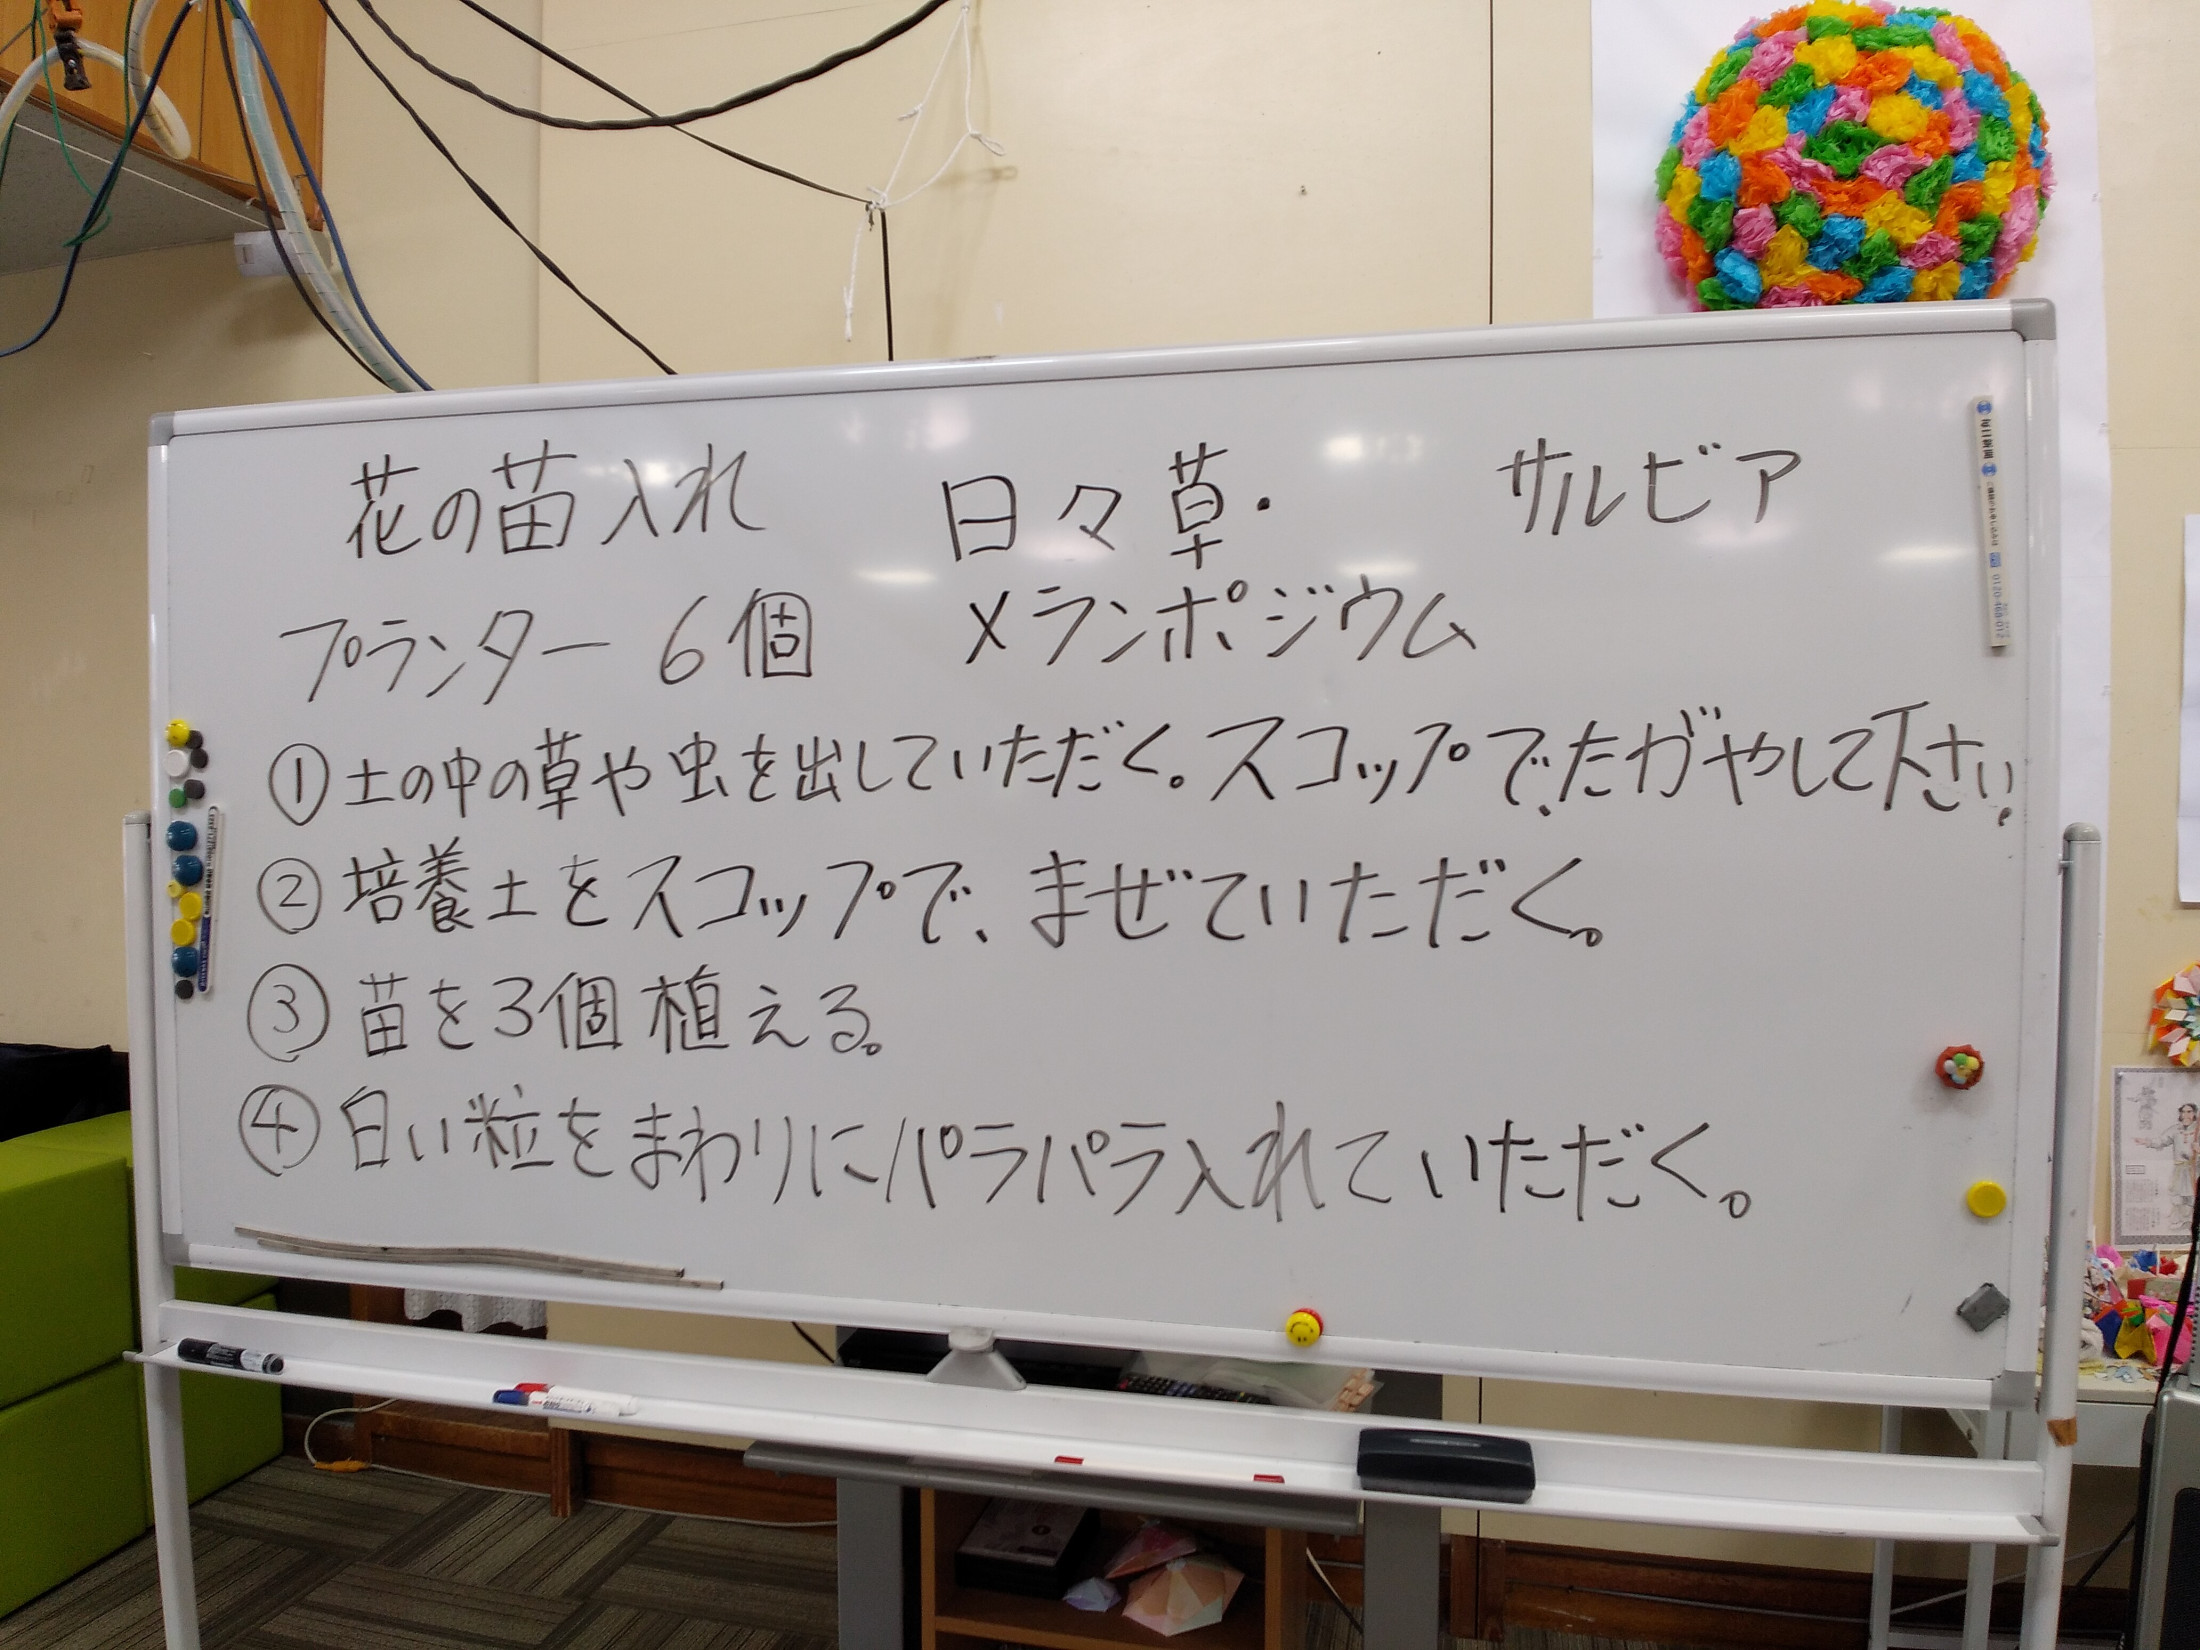 花の苗入れ 日々草・ サルビア
プランター 6個 メランポジウム
①土の中の草や虫を出していただく。スコップで、たがやして下さい。
②培養土をスコップで、まぜていただく。
③苗を3個植える。
④白い粒をまわりにパラパラ入れていただく。